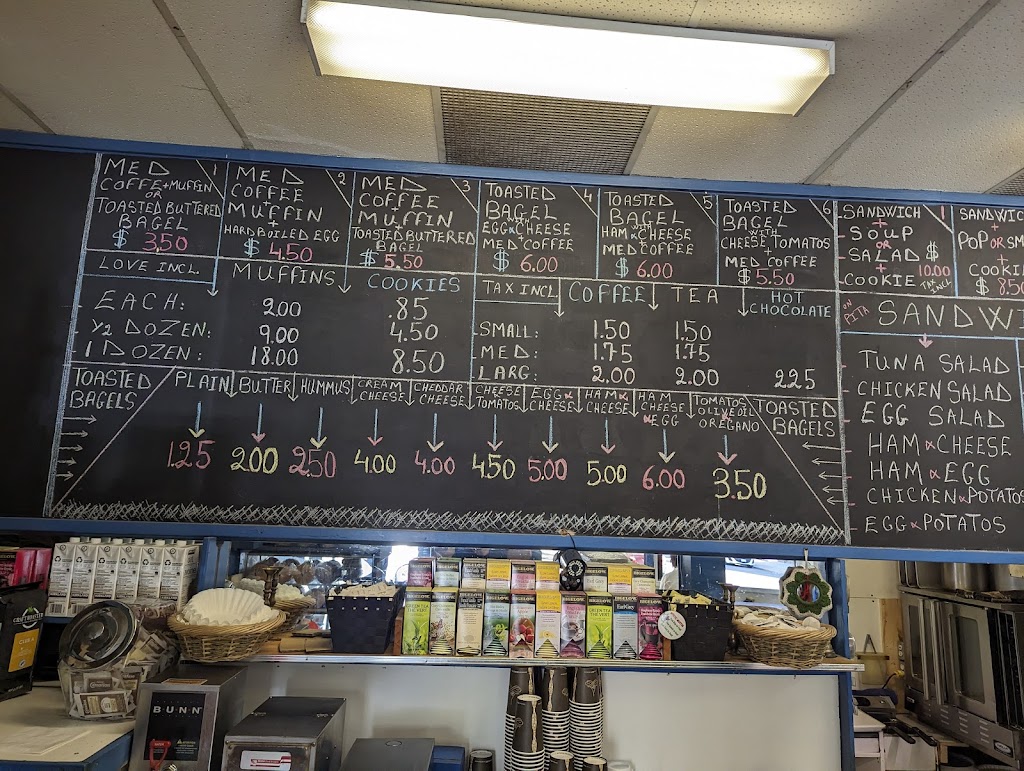 MED 1
COFFE + MUFFIN
OR
TOASTED BUTTERED
BAGEL
$ 3.50
MED 2
COFFEE
+
MUFFIN
+
HARDBOILED EGG
$ 4.50
MED 3
COFFEE
MUFFIN
+
TOASTED BUTTERED
BAGEL
$ 5.50
TOASTED 4
BAGEL
WITH
EGG & CHEESE
+
MED COFFEE
$ 6.00
TOASTED 5
BAGEL
WITH
HAM & CHEESE
+
MED COFFEE
$ 6.00
TOASTED 6
BAGEL
WITH
CHEESE, TOMATOS
+
MED COFFEE
$ 5.50
SANDWICH 1
+
SOUP
OR
SALAD $
+ 10.00
COOKIE TAX INCL
SANDWIC
+
POP OR SM
+
COOKI
$ 8.50
LOVE INCL. MUFFINS COOKIES
EACH: 2.00 .85
1/2 DOZEN: 9.00 4.50
1 DOZEN: 18.00 8.50
TAX INCL COFFEE TEA HOT CHOCOLATE
SMALL: 1.50 1.50
MED: 1.75 1.75
LARG: 2.00 2.00 2.25
TOASTED
BAGELS
PLAIN 1.25
BUTTER 2.00
HUMMUS 2.50
CREAM CHEESE 4.00
CHEDDAR CHEESE 4.00
CHEESE TOMATOS 4.50
EGG & CHEESE 5.00
HAM & CHEESE 5.00
HAM CHEESE & EGG 6.00
TOMATOS OLIVE OIL OREGANO 3.50
TOASTED
BAGELS
ON PITA SANDWI
TUNA SALAD
CHICKEN SALAD
EGG SALAD
HAM & CHEESE
HAM & EGG
CHICKEN & POTATOS
EGG & POTATOS
BIGELOW
GREEN TEA
Earl Grey
BUNN